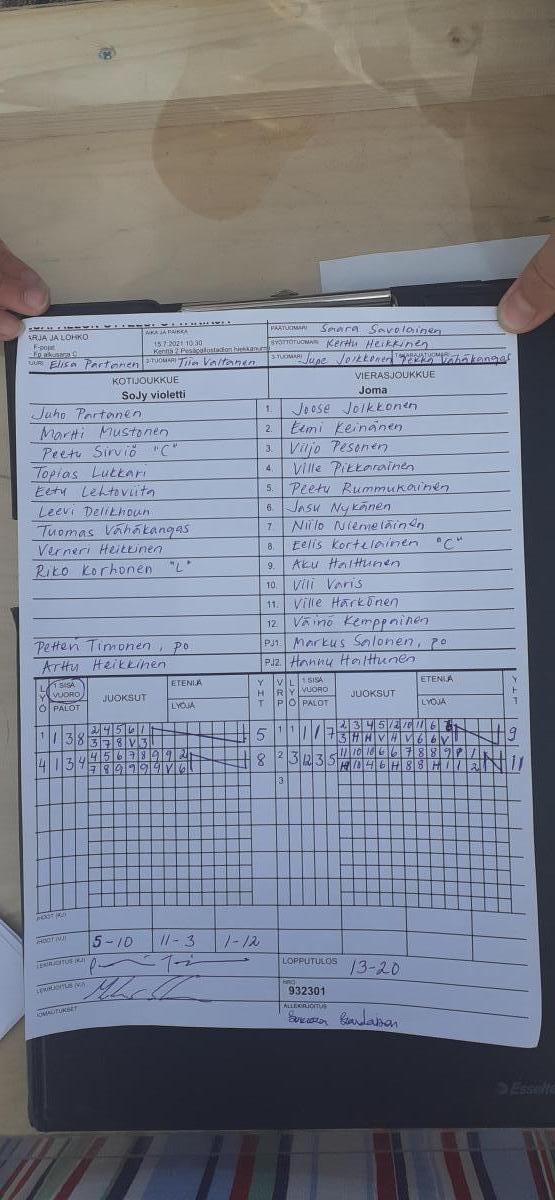 ARJA JA LOHKO
F-pojat
Fp alkusarja C
AIKA JA PAIKKA
15.7.2021 10.30
Kenttä 2 Pesäpallostadion hiekkanurmi
PÄÄTUOMARI Saara Savolainen
SYÖTTÖTUOMARI Kerttu Heikkinen
Elisa Partanen 2-TUOMARI Tiia Valtanen 3-TUOMARI Jupe Jolkkonen TAKARAJATUOMARI Pekka Vähäkangas
KOTIJOUKKUE VIERASJOUKKUE
SoJy violetti Joma
Juho Partanen 1. Joose Jolkkonen
Martti Mustonen 2. Eemi Keinänen
Peetu Sirviö "C" 3. Viljo Pesonen
Topias Lukkari 4. Ville Pikkarainen
Eetu Lehtoviita 5. Peetu Rummukainen
Leevi Delikhoun 6. Jasu Nykänen
Tuomas Vähäkangas 7. Niilo Niemeläinen
Verneri Heikkinen 8. Eelis Kortelainen "C"
Riko Korhonen "L" 9. Aku Halttunen
10. Vili Varis
11. Ville Härkönen
12. Väinö Kemppainen
Petteri Timonen, po PJ1 Markus Salonen, po
Arttu Heikkinen PJ2. Hannu Halttunen
LYÖ 1.SISÄ VUORO PALOT JUOKSUT ETENIJÄ LYÖJÄ YHT VRP LYÖ 1.SISÄ VUORO PALOT JUOKSUT ETENIJÄ LYÖJÄ YHT
1 1 3 8 2 4 5 6 1 5 1 1 1 1 7 2 3 4 5 12 10 11 6 9
3 7 8 V 3 3 H H V H V 6 6 V
4 1 3 4 4 5 6 7 8 9 9 2 8 2 3 12 3 5 11 10 10 6 6 7 8 8 9 9 1 11
7 8 9 9 9 9 V 6 H 10 4 6 H 8 8 H 1 1 2
3
5-10 11-3 1-12
LOPPUTULOS 13-20
NRO
932301
ALLEKIRJOITUS
Esselte